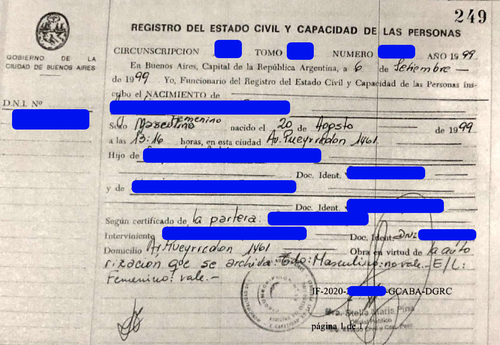 249
REGISTRO DEL ESTADO CIVIL Y CAPACIDAD DE LAS PERSONAS
GOBIERNO DE LA
CIUDAD DE BUENOS AIRES
CIRCUNSCRIPCION TOMO NUMERO AÑO 1999
En Buenos Aires, Capital de la República Argentina, a 6 de Setiembre
de 1999 Yo, Funcionario del Registro del Estado Civil y Capacidad de las Personas ins-
cribo el NACIMIENTO de
D.N.I. Nº
Femenino
Sexo Masculino nacido el 20 de Agosto de 1999
a las 13:16 horas, en esta ciudad Av. Pueyrredon 1461
Hijo de
Doc. Ident.
y de
Doc. Ident.
Según certificado de la partera:
Interviniente Doc. Ident. DNI
Domicilio Av. Pueyrredon 1461 Obra en virtud de la auto
rizacion que se archiva: Tdo: Masculino: no vale.- E/L:
Femenino: vale.-
IF-2020- -GCABA-DGRC
Stella Maris Pina
página 1 de 1